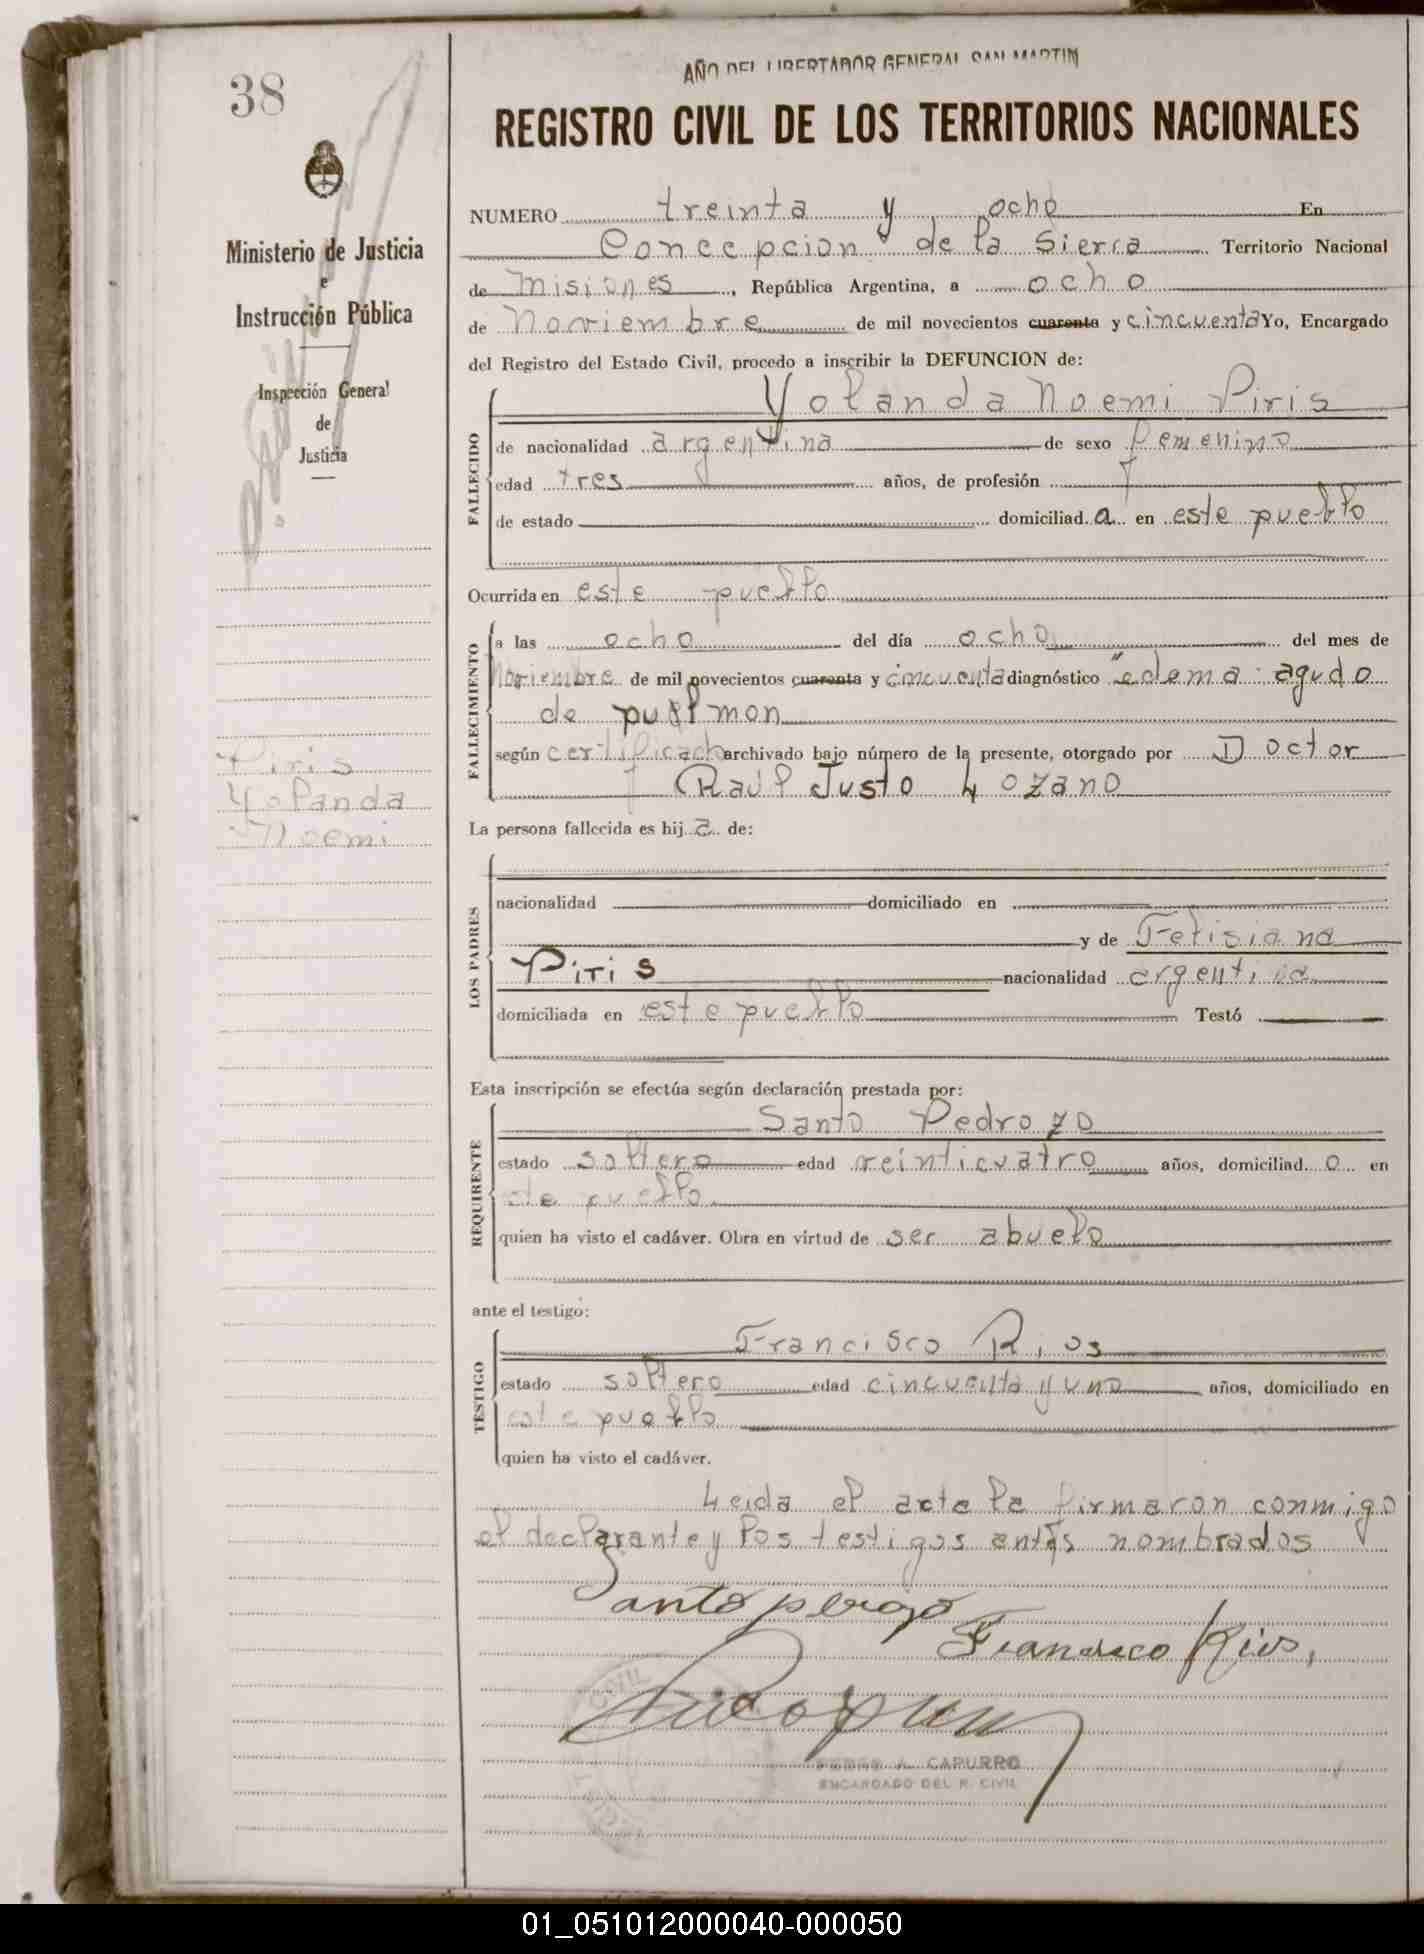 38
AÑO DEL LIBERTADOR GENERAL SAN MARTIN
REGISTRO CIVIL DE LOS TERRITORIOS NACIONALES
Ministerio de Justicia
e
Instrucción Pública
Inspección General
de
Justicia
Piris
Yolanda
Noemi
NUMERO treinta y ocho En
Concepcion de la Sierra Territorio Nacional
de Misiones, República Argentina, a ocho
de Noviembre de mil novecientos cuarenta y cincuenta Yo, Encargado
del Registro del Estado Civil, procedo a inscribir la DEFUNCION de:
FALLECIDO
Yolanda Noemi Piris
de nacionalidad argentina de sexo femenino
edad tres años, de profesión
de estado domiciliad a en este pueblo
Ocurrida en este pueblo
FALLECIMIENTO
a las ocho del día ocho del mes de
Noviembre de mil novecientos cuarenta y cincuenta diagnóstico "edema agudo
de pulmon
según certificado archivado bajo número de la presente, otorgado por Doctor
Raúl Justo Lozano
La persona fallecida es hij a de:
LOS PADRES
nacionalidad domiciliado en
y de Felisiana
Piris nacionalidad argentina
domiciliada en este pueblo Testó
Esta inscripción se efectúa según declaración prestada por:
REQUIRENTE
Santo Pedrozo
estado soltero edad veinticuatro años, domiciliad o en
este pueblo
quien ha visto el cadáver. Obra en virtud de ser abuelo
ante el testigo:
TESTIGO
Francisco Rios
estado soltero edad cincuenta y uno años, domiciliado en
este pueblo
quien ha visto el cadáver.
Leida el acta la firmaron conmigo
el declarante y los testigos antes nombrados
Santo
Francisco Rios,
CIVIL
PEDRO A. CAPURRO
ENCARGADO DEL R. CIVIL
01_051012000040-000050